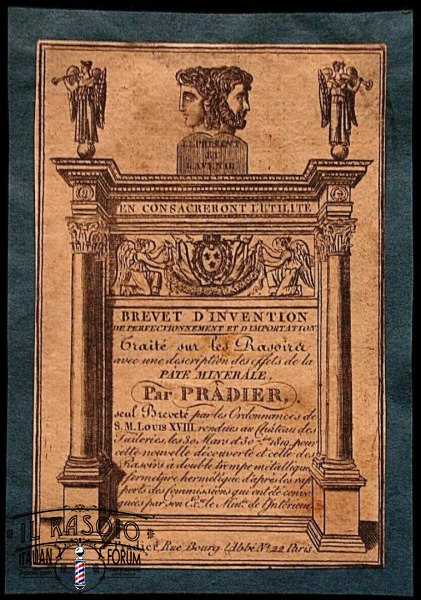 LE PRÉSENT
ET
L'AVENIR
EN CONSACRERONT L'UTILITÉ
BREVET D'INVENTION
DE PERFECTIONNEMENT ET D'IMPORTATION
Traité sur les Rasoirs
avec une description des effets de la
PATE MINERALE,
Par PRÂDIER,
seul Breveté par les Ordonnances de
S. M. LOUIS XVIII. rendues au Château des
Tuileries, les 30 Mars et 30 1819, pour
cette nouvelle découverte et celle des
Rasoirs a double trempe métallique,
fermeture hermétique, d'après les rap
ports des Commissions qui ont été convo
quées par son Exce. le Mintre. de l'Intérieur.
Rue Bourg l'Abbé No. 22 Paris
IL RASOIO
ITALIAN FORUM